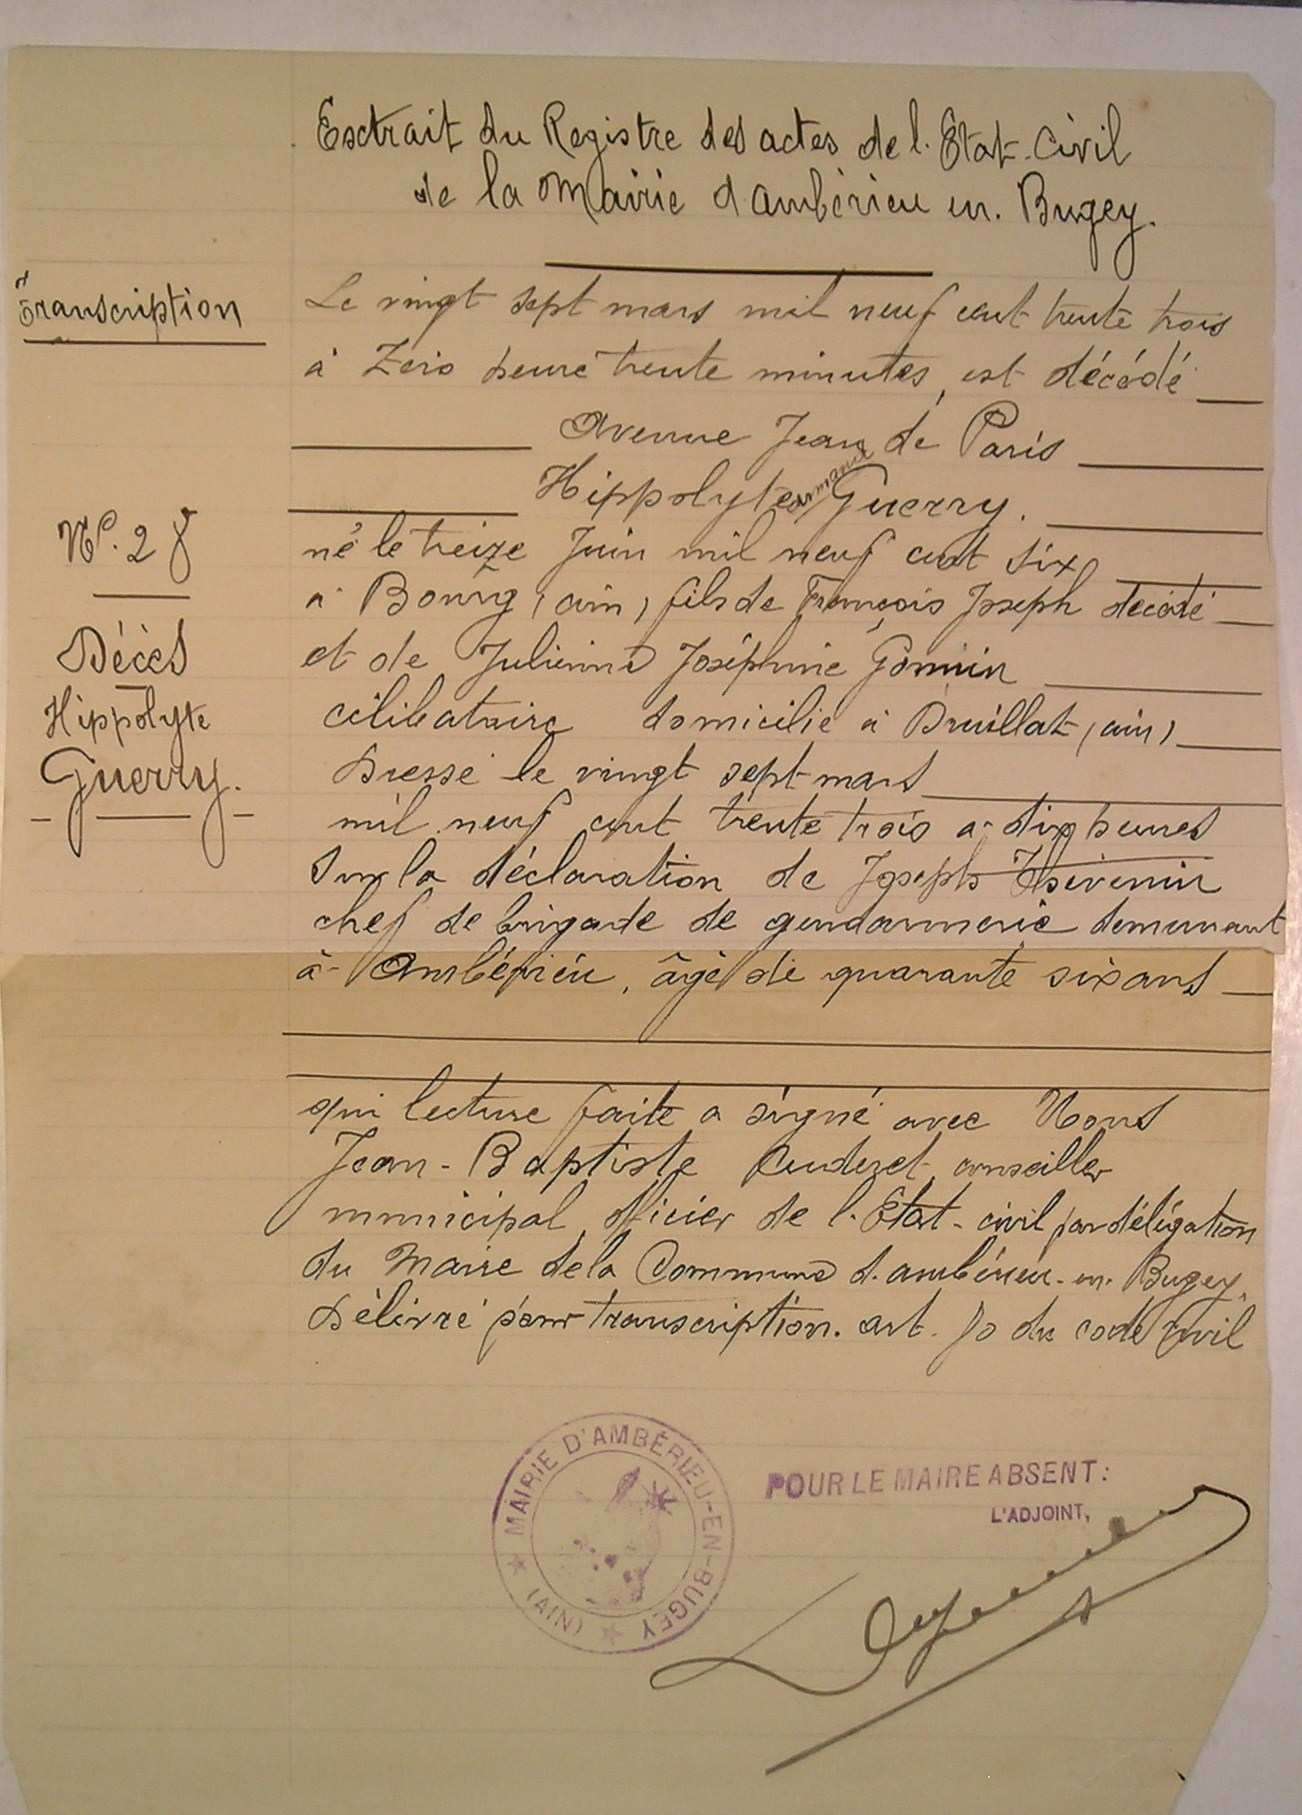 Esctrait du Registre des actes de l. État-Civil
de la Mairie d'Ambérieu en. Bugey.
Transcription
Le vingt sept mars mil neuf cent trente trois
à Zéro heure trente minutes, est décédé
Avenue Jean de Paris
Hippolyte Armand Guerry.
né le treize Juin mil neuf cent six
à Bourg (ain) fils de François Joseph décédé
et de Julienne Joséphine Gonnin
célibataire domicilié à Druillat (ain)
Dressé le vingt sept mars
mil neuf cent trente trois à dix heures
Sur la déclaration de Joseph Thévenin
chef de brigade de gendarmerie demeurant
à Ambérieu, âgé de quarante six ans
N°. 28
Décès
Hippolyte
Guerry.
qui lecture faite a signé avec Nous
Jean-Baptiste conseiller
municipal, officier de l. État-civil par délégation
du Maire de la Commune d. ambérieu-en-Bugey.
Délivré pour transcription. art. 80 du code civil
MAIRIE D'AMBÉRIEU-EN-BUGEY
(AIN)
POUR LE MAIRE ABSENT:
L'ADJOINT,